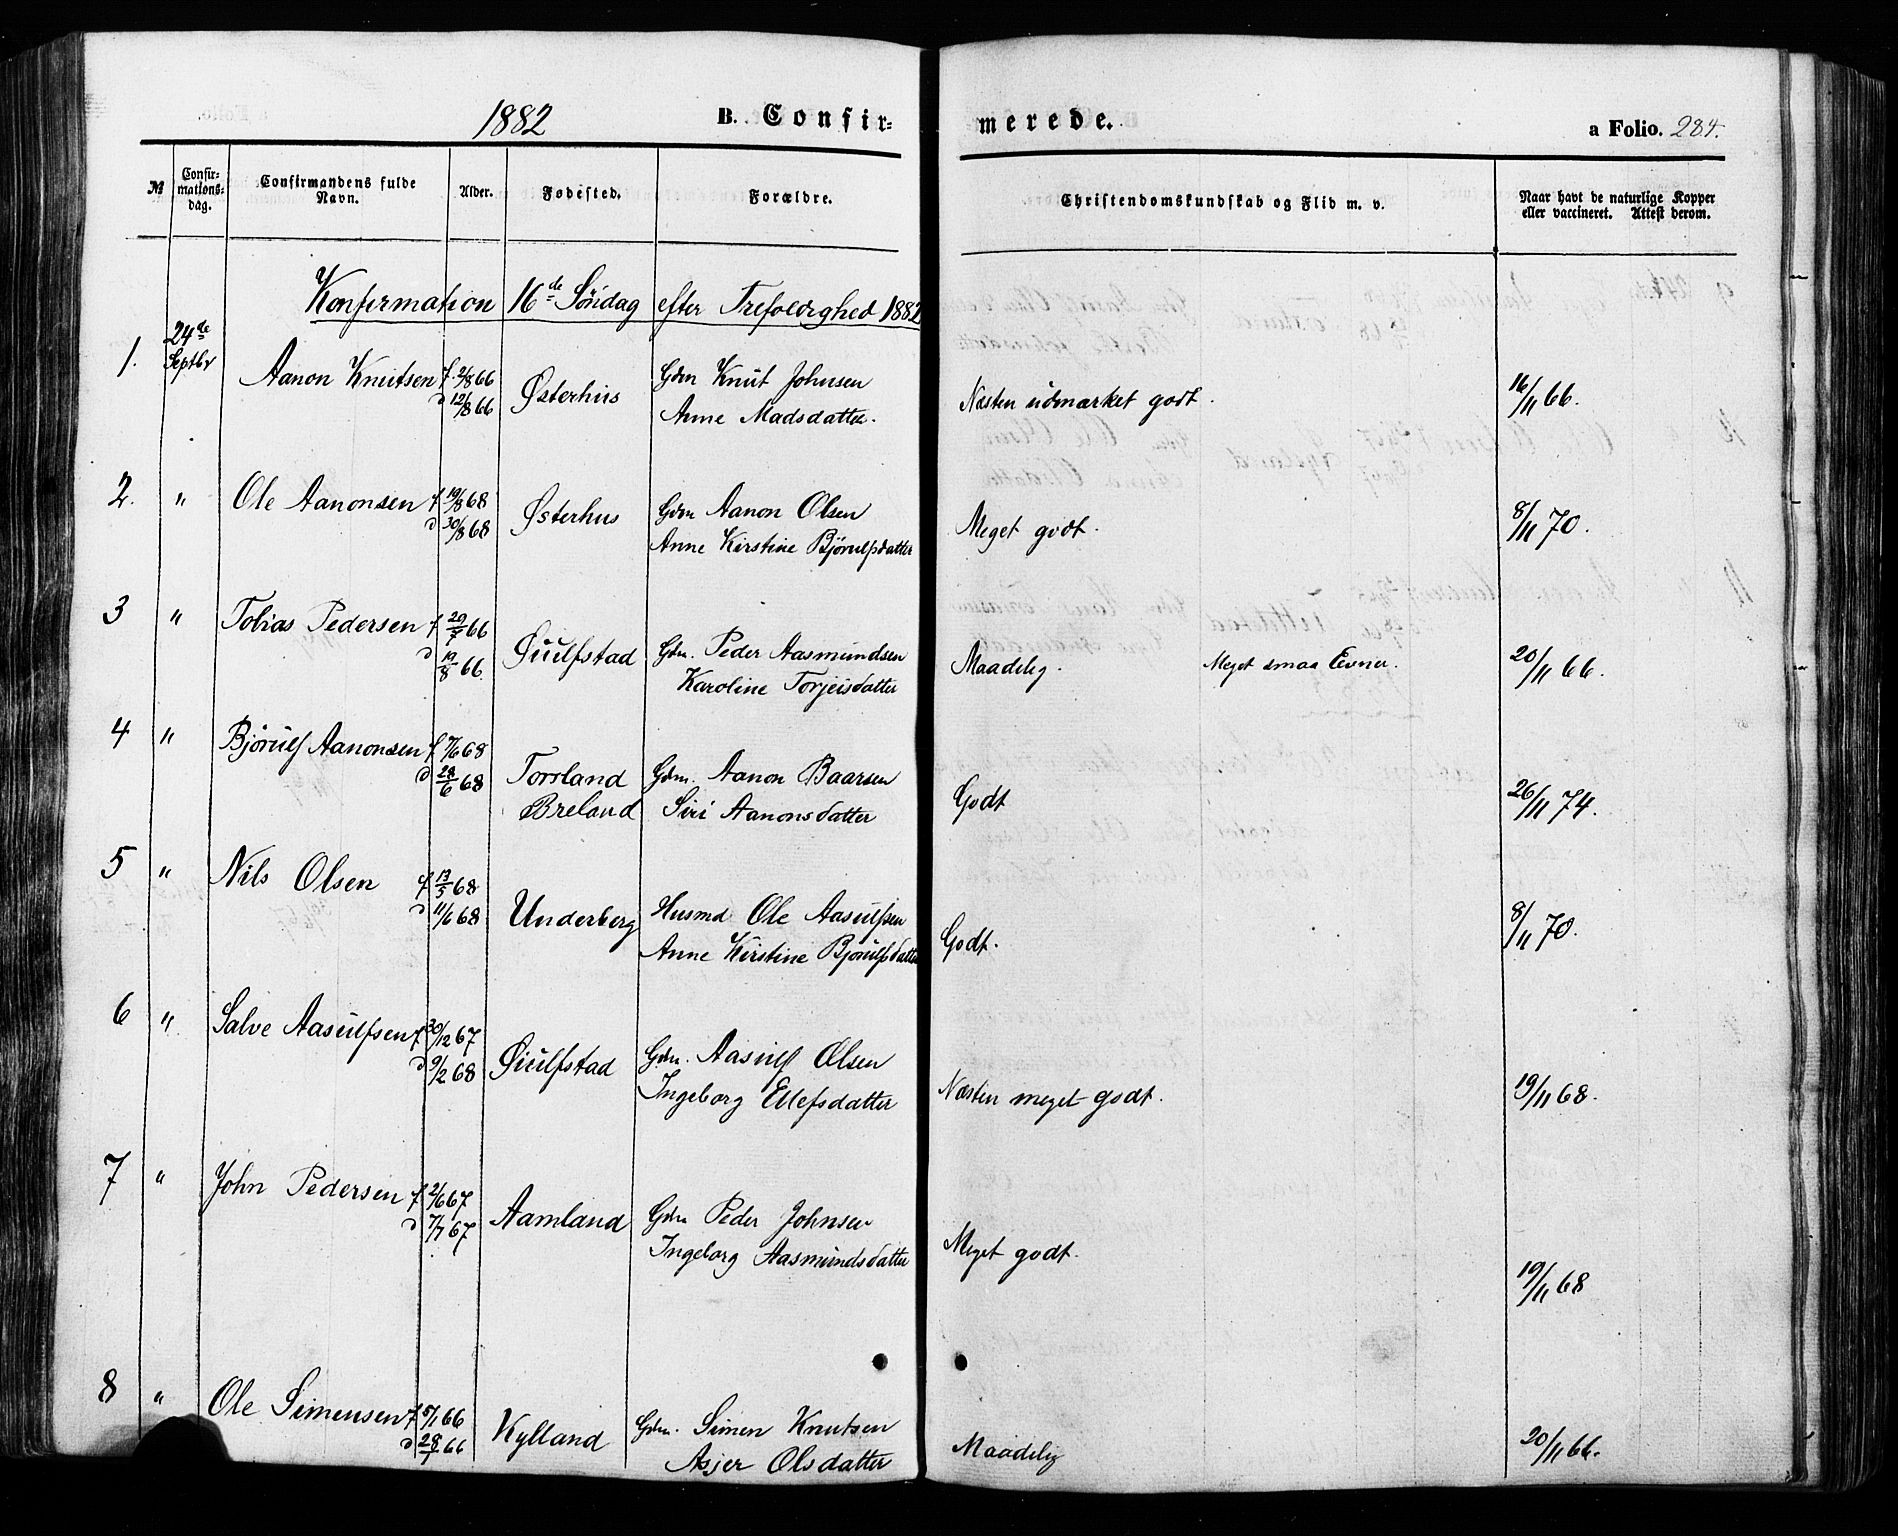 1882 B. Confir-
merede. a Folio. 284.
№ Confir-mations-dag. Confirmandens fulde Navn. Alder. Fødested. Forældre. Christendomskundskab og Flid m. v. Naar havt de naturlige Kopper eller vaccineret. Attest derom.
Konfirmation 16de Söndag efter Trefoldighed 1882
1. 24de Septbr Aanon Knutsen f. 2/8 66 Gdm Knut Johnsen
d 12/8 66 Østerhus Anne Madsdatter. Næsten udmærket godt. 16/11 66.
2. " Ole Aanonsen f 19/8 68 Gdm Aanon Olsen
d 30/8 68 Østerhus Anne Kirstine Bjørulfsdatter Meget godt. 8/11 70.
3 " Tobias Pedersen f 20/7 66 Gdm. Peder Aasmundsen
d 19/8 66 Øiulfstad Karoline Torjeisdatter Maadelig. Meget smaa Evner. 20/11 66.
4 " Bjørulf Aanonsen f 7/6 68 Torsland Gdm. Aanon Baarsen
d 28/6 68 Breland Siri Aanonsdatter Godt 26/11 74.
5 " Nils Olsen f 13/5 68 Husmd Ole Aasulfsen
d 11/6 68 Underberg Anne Kirstine Bjørulfsdatter Godt. 8/11 70.
6 " Salve Aasulfsen f 30/12 67 Gdm. Aasulf Olsen
d 9/2 68 Øiulfstad Ingeborg Ellefsdatter Næsten meget godt. 19/11 68.
7 " John Pedersen f 2/6 67 Gdm Peder Johnsen
d 7/7 67 Aamland Ingeborg Aasmundsdatter Meget godt. 19/11 68
8 " Ole Simensen f 5/1 66 Gdm. Simen Knutsen
d 28/1 66 Kylland Asjer Olsdatter Maadelig 20/11 66.